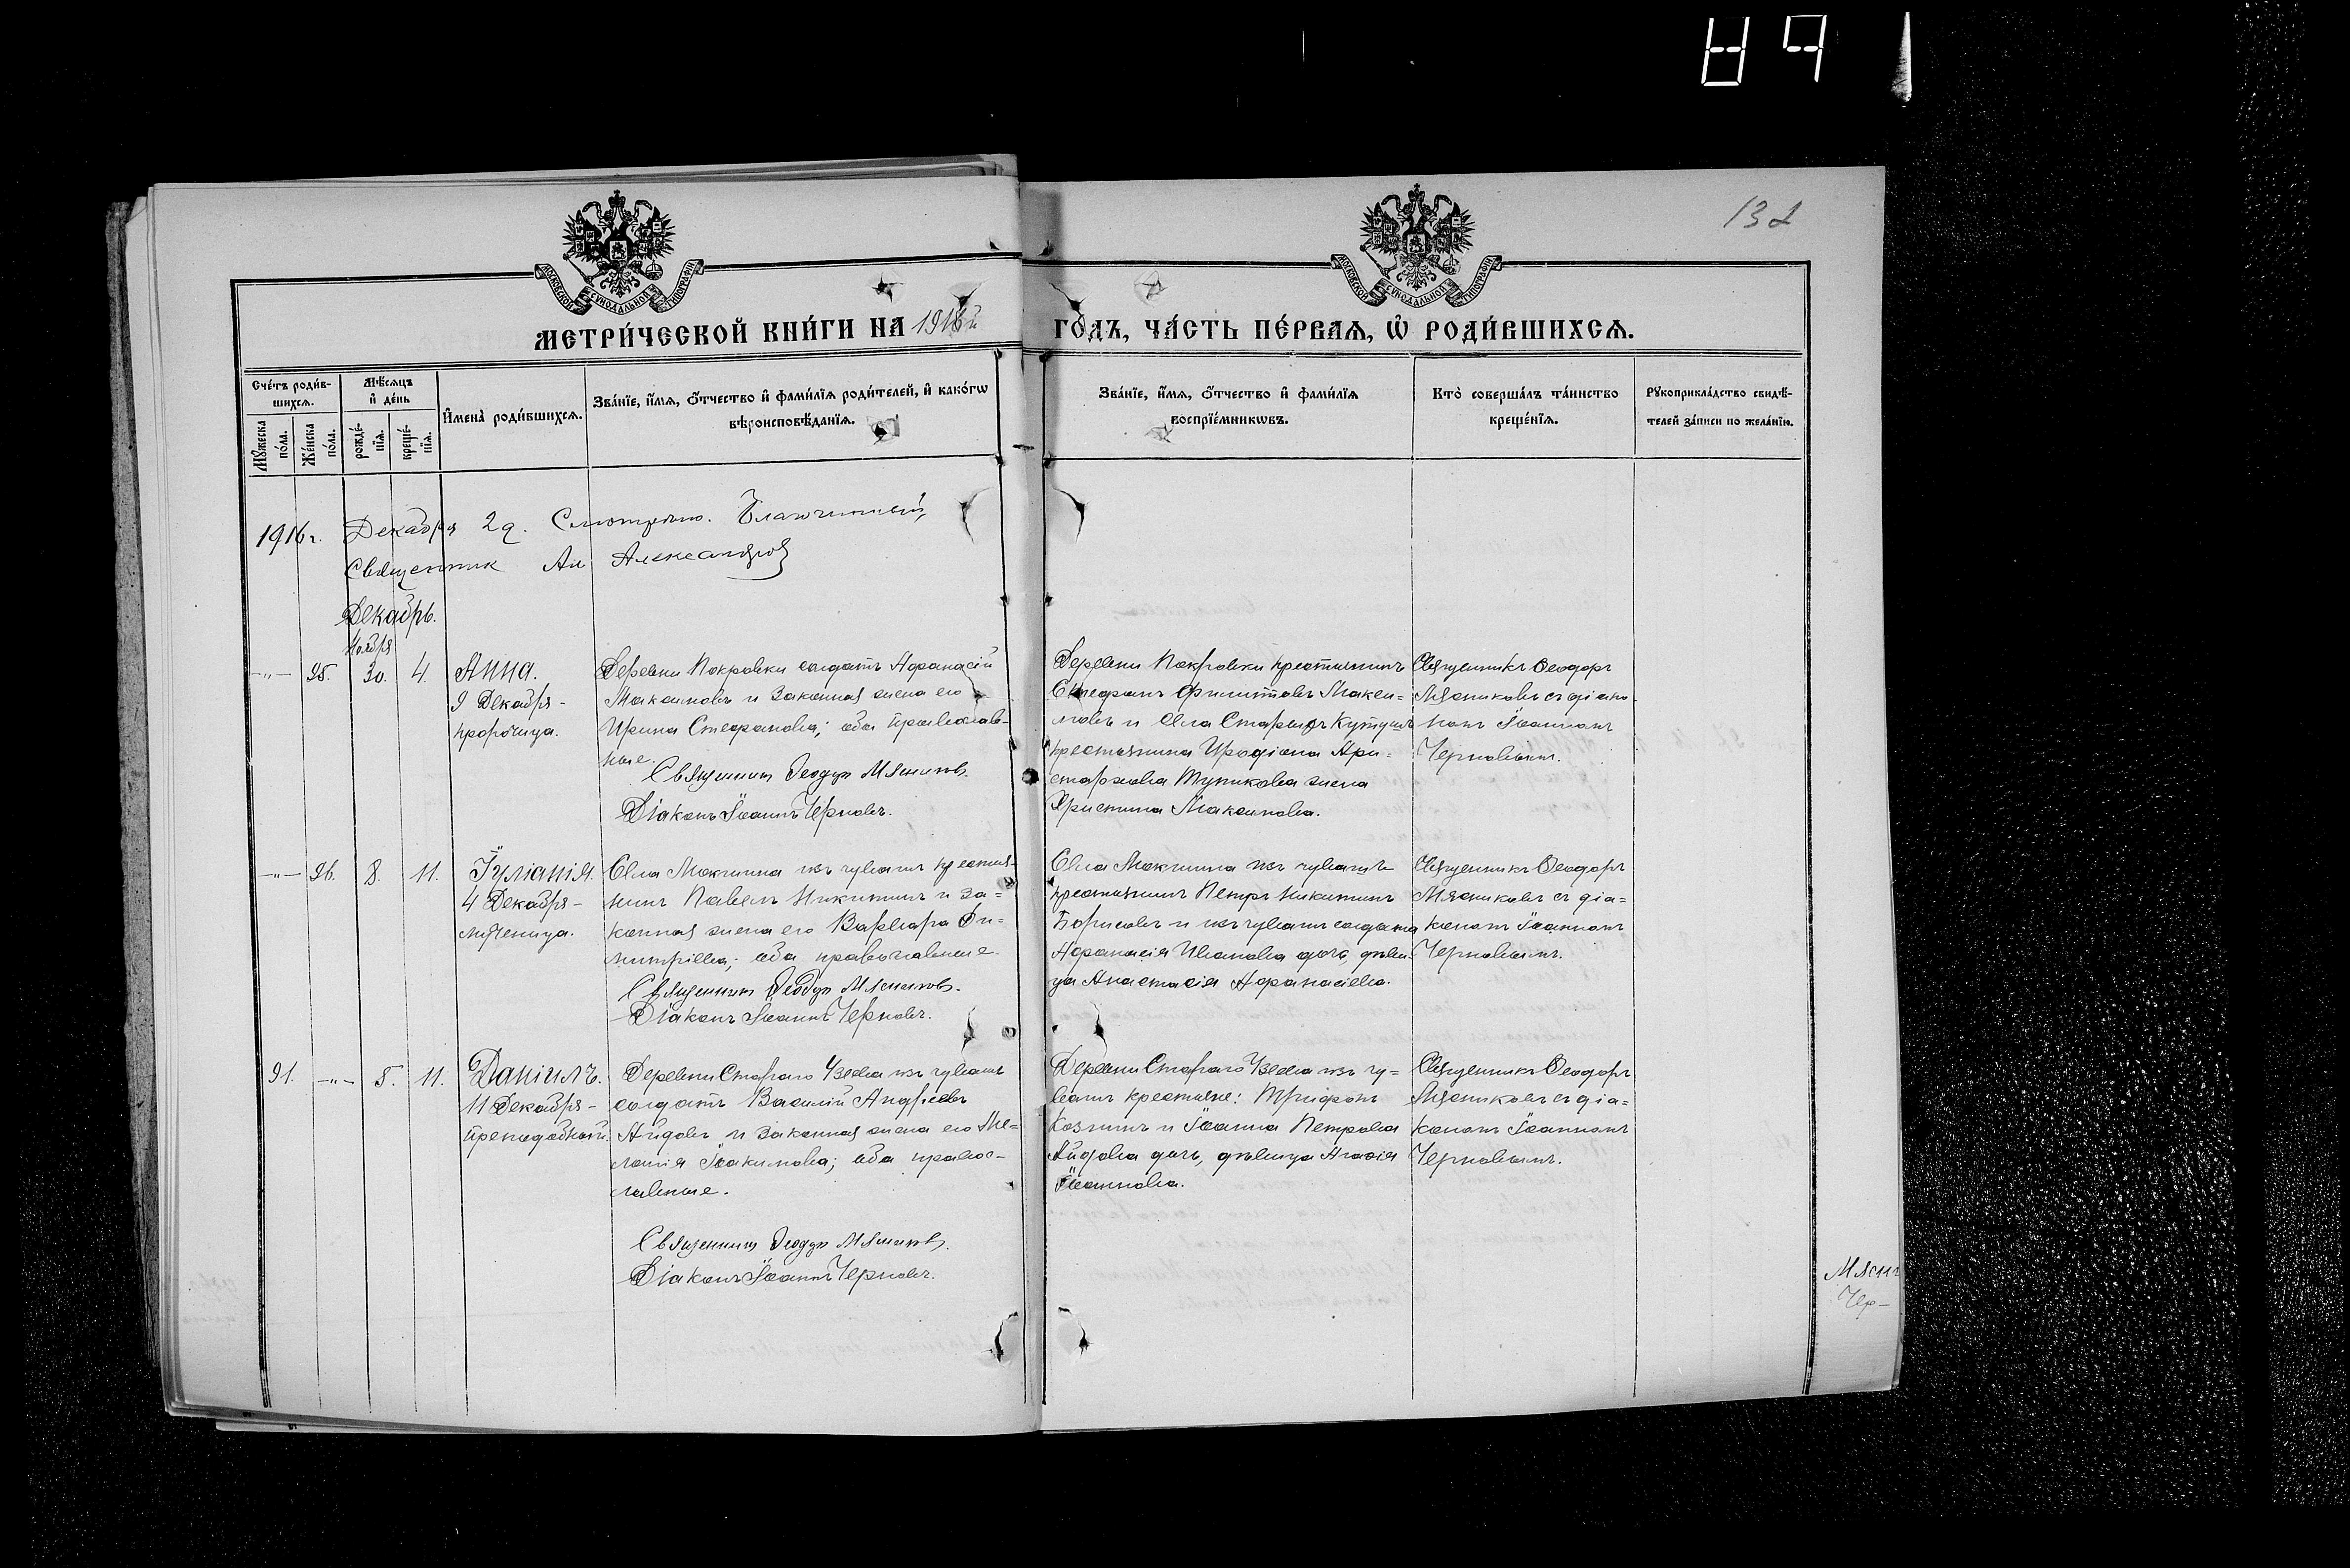 132
МОСКОВСКОЙ СѴНОДАЛЬНОЙ ТИПОГРАФІИ
МОСКОВСКОЙ СѴНОДАЛЬНОЙ ТИПОГРАФІИ
МЕТРИ́ЧЕСКОЙ КНИ́ГИ НА 1916й ГОДЪ, ЧА́СТЬ ПЕ́РВАЯ, Ѡ РОДИ́ВШИХСЯ.
Сче́тъ роди́в-
шихся.
Мꙋ́жеска
по́ла.
Же́нска
по́ла.
Мѣ́сяцъ
и҆ де́нь
рожде́-
нїя.
креще́-
нїя.
И҆мена̀ роди́вшихся.
Зва́нїе, и҆́мя, ѻ҆́тчество и҆ фами́лїя роди́телей, и҆ како́гѡ
вѣроисповѣ́данїя.
Зва́нїе, и҆́мя, ѻ҆́тчество и҆ фами́лїя
воспрїе́мникѡвъ.
Кто̀ соверша́лъ та́инство
креще́нїя.
Рꙋкоприкла́дство свидѣ́-
телей за́писи по жела́нїю.
1916 г. Декабря 29. Смотрѣно. Благочинный,
Священник Ал Александров
Декабрь.
Ноября
-"- 95. 30. 4. Анна.
9 Декабря -
пророчица.
Деревни Покровки солдатъ Аѳанасій
Максимовъ и законная жена его
Ирина Стефановна; оба православ-
ные.
Священник Ѳеодор Мясников.
Діаконъ Іоаннъ Черновъ.
Деревни Покровки крестьянинъ
Стефанъ Филипповъ Макси-
мовъ и села Старыхъ Кутушъ
крестьянина Иродіона Ари-
стархова Тупикова жена
Христина Максимова.
Священникъ Ѳеодоръ
Мясниковъ съ діако-
номъ Іоанномъ
Черновымъ.
-"- 96. 8. 11. Іуліанія.
4 Декабря -
мученица.
Села Мокшина изъ чувашъ крестья-
нинъ Павелъ Никитинъ и за-
конная жена его Варвара Ди-
митріева; оба православные.
Священник Ѳеодор Мясников.
Діаконъ Іоаннъ Черновъ.
Села Мокшина изъ чувашъ
крестьянинъ Петръ Никитинъ
Борисовъ и изъ чувашъ солдата
Аѳанасія Иванова дочь, дѣви-
ца Анастасія Аѳанасіева.
Священникъ Ѳеодоръ
Мясниковъ съ діа-
кономъ Іоанномъ
Черновымъ.
91. -"- 5. 11. Даніилъ.
11 Декабря -
преподобный.
Деревни Стараго Узеева изъ чувашъ
солдатъ Василій Андреевъ
Айдовъ и законная жена его Ме-
ланія Іоакимова; оба правос-
лавные.
Священник Ѳеодор Мясников.
Діаконъ Іоаннъ Черновъ.
Деревни Стараго Узеева изъ чу-
вашъ крестьяне: Трифонъ
Козминъ и Іоанна Петрова
Айдова дочь, дѣвица Агаѳія
Іоаннова.
Священникъ Ѳеодоръ
Мясниковъ съ діа-
кономъ Іоанномъ
Черновымъ.
Мясни
Чер-